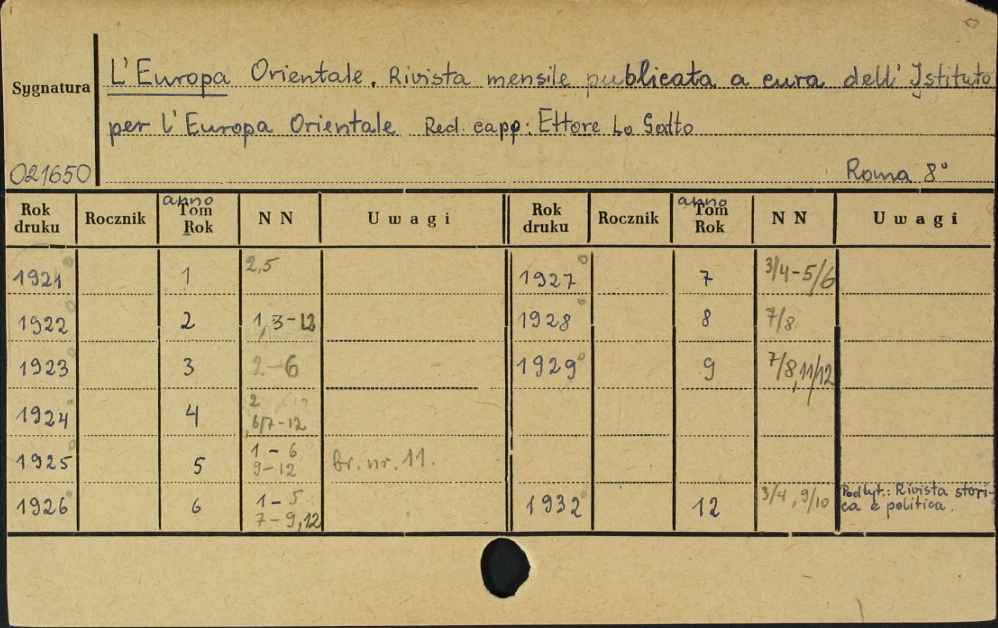 Sygnatura
L'Europa Orientale. Rivista mensile publicata a cura dell' Istituto
per l'Europa Orientale Red. capp: Ettore Lo Gatto
021650 Roma 8°
Rok druku Rocznik anno Tom Rok N N Uwagi Rok druku Rocznik anno Tom Rok N N Uwagi
1921 1 2,5 1927 7 3/4-5/6
1922 2 1,3-12 1928 8 7/8
1923 3 2-6 1929 9 7/8, 11/12
1924 4 2, 6/7-12
1925 5 1-6 9-12 br. nr. 11.
1926 6 1-5 7-9,12 1932 12 3/4, 9/10 Podtyt.: Rivista stori-
ca e politica.